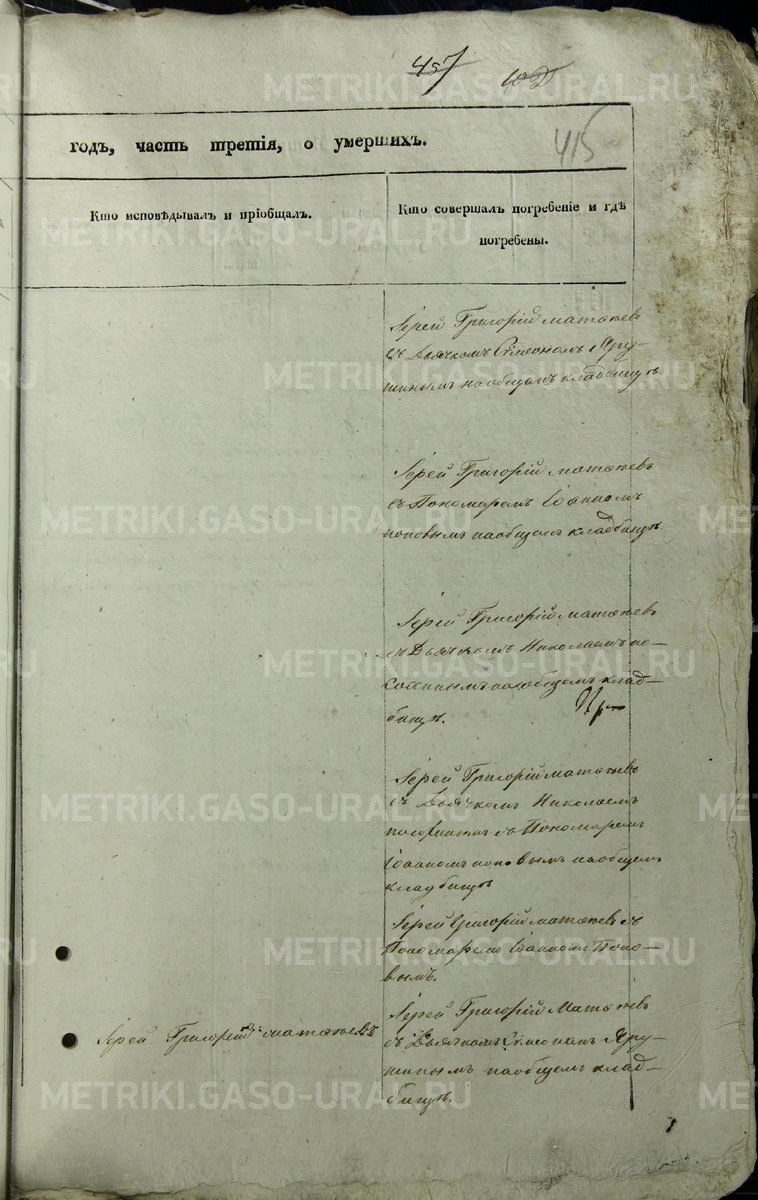 457
415
годъ, часть третія, о умершихъ.
Кто исповѣдывалъ и пріобщалъ.
Кто совершалъ погребеніе и гдѣ
погребены.
Іерей Григорій Матѳѣевъ
съ Дьячкомъ Симеономъ Яру-
шинымъ на общемъ кладбищѣ.
Іерей Григорій Матѳѣевъ
съ Пономаремъ Іоанномъ
поповымъ на общемъ кладбищѣ
Іерей Григорій Матѳѣевъ
съ Дьячкомъ Николаемъ
на общемъ клад-
бищѣ.
Іерей Григорій Матѳѣевъ
съ Дьячкомъ Николаемъ
съ Пономаремъ
Іоанномъ поповымъ на общемъ
кладбищѣ
Іерей Григорій Матѳѣевъ съ
Пономаремъ Іоанномъ Попо-
вымъ.
Іерей Григорій Матѳѣевъ
Іерей Григорій Матѳѣевъ
съ Дьячкомъ Симеономъ Яру-
шинымъ на общемъ клад-
бищѣ.
METRIKI.GASO-URAL.RU